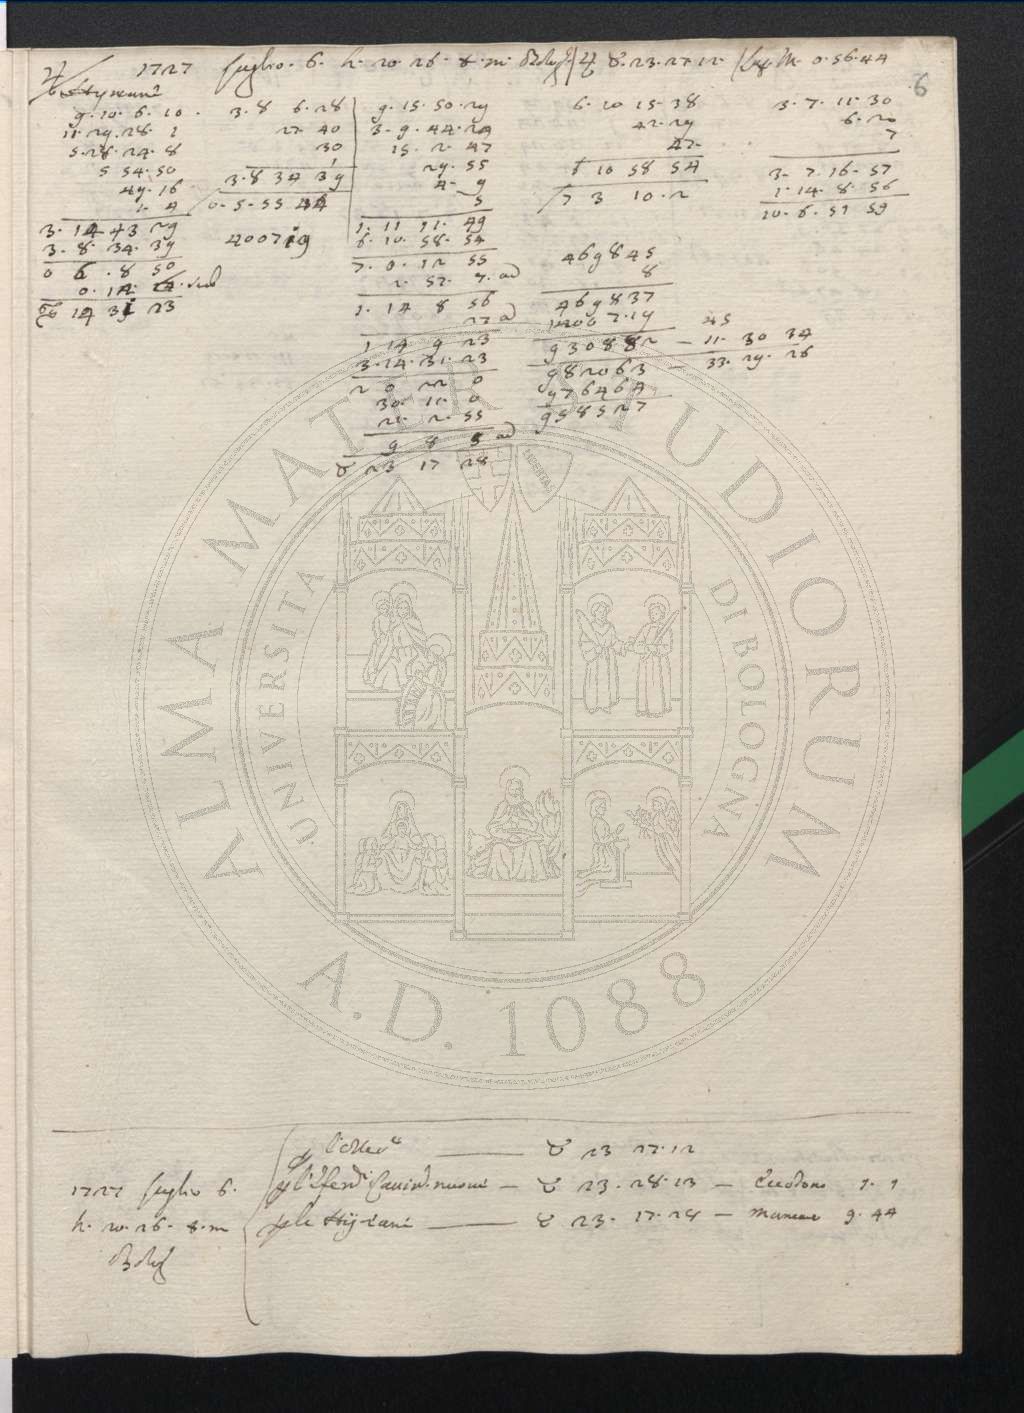 ♃ 1727 Luglio. 6. h. 20. 26. 8. m. Bolog. ♃ ♉. 23. 27. 12.
6
9. 10. 6. 10.
11. 29. 28. 1
5. 28. 24. 8
5 54. 50
49. 16
1. 4
3. 14 43 29
3. 8. 34. 39
0 6. 8 50
14 31 23
3. 8 6. 28
27 40
30
1
3. 8 34 39
0. 5. 55 44
400719
9. 15. 50. 29
3. 9. 44. 24
15. 2. 47
29. 55
4. 9
5
1. 11 11. 49
6. 10. 58. 54
7. 0. 12 55
2. 52. 7. ad
1. 14 8 56
27 ad
1 14 9 23
3. 14. 31. 23
2 0 22 0
30. 11. 0
21. 2. 55
9 8 5 ad
♉ 23 17 28
6. 10 15. 38
42. 29
47
6 10 58 54
7 3 10. 2
469845
8
469837
400719
930882 — 11. 30 34
45
982063 — 33. 29. 26
976464
958527
3. 7. 11. 30
6. 20
7
3. 7. 16. 57
1. 14. 8. 56
10. 6. 51 59
ALMA MATER STUDIORUM
UNIVERSITÀ DI BOLOGNA
LIBERTAS
A.D. 1088
♉ 23 27. 12
1727 Luglio 6. — ♉ 23. 28. 13 — Eccedono 1. 1
h. 20. 26. 8. m — ♉ 23. 17. 28 — mancano 9. 44
Bolog